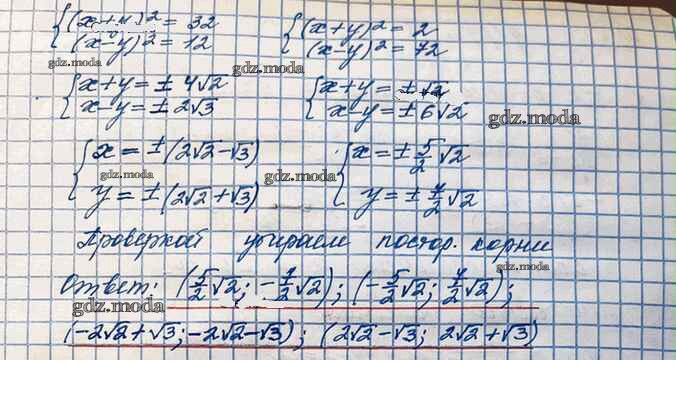 {(x+y)² = 32 {(x+y)² = 2
(x-y)² = 12 (x-y)² = 72
gdz.moda gdz.moda
{x+y = ±4√2 {x+y = ±√2
x-y = ±2√3 x-y = ±6√2
gdz.moda
{x = ±(2√2-√3) {x = ±5/2√2
gdz.moda gdz.moda
y = ±(2√2+√3) y = ±7/2√2
Проверкой убираем постор. корни
gdz.moda
Ответ: (5/2√2; -7/2√2); (-5/2√2; 7/2√2);
gdz.moda
(-2√2+√3; -2√2-√3); (2√2-√3; 2√2+√3)